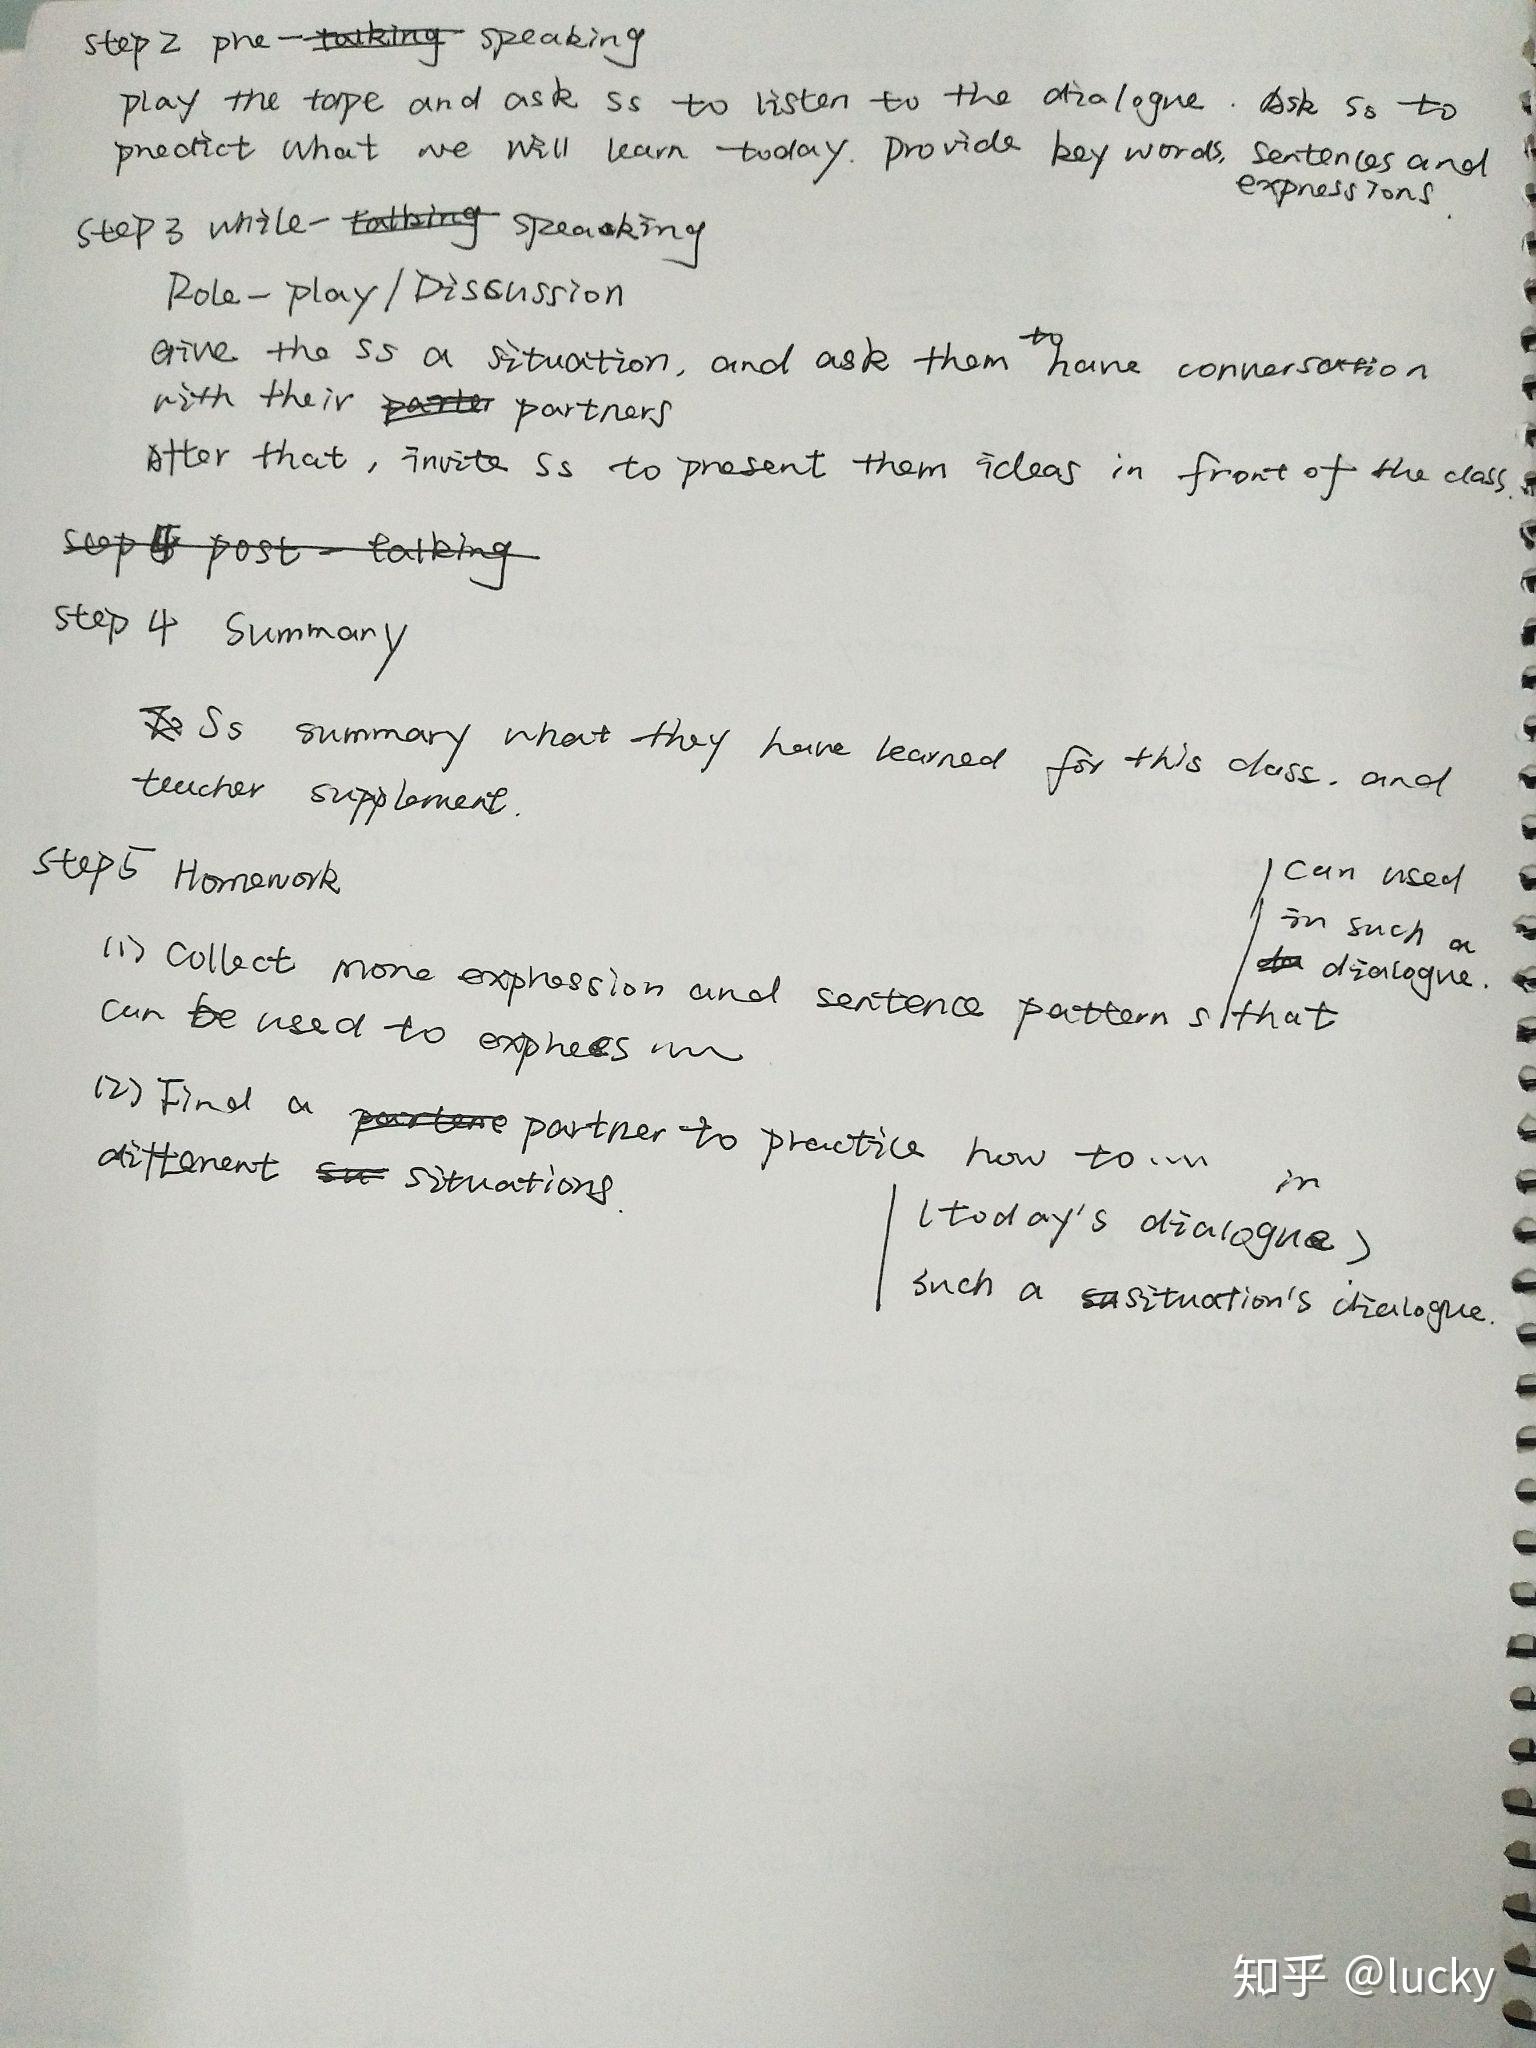 step 2 pre-talking speaking
play the tape and ask Ss to listen to the dialogue. Ask Ss to
predict what we will learn today. Provide key words, sentences and
expressions.
step 3 while-talking speaking
Role-play/Discussion
Give the Ss a situation, and ask them to have conversation
with their parter partners
After that, invite Ss to present them ideas in front of the class.
step 4 post-talking
step 4 Summary
Ss summary what they have learned for this class. and
teacher supplement.
step 5 Homework
(1) Collect more expression and sentence patterns that
can be used to express ......
can used
in such a
dialogue.
(2) Find a partene partner to practice how to ...... in
different su situations.
(today's dialogue)
such a su situation's dialogue.
知乎 @lucky